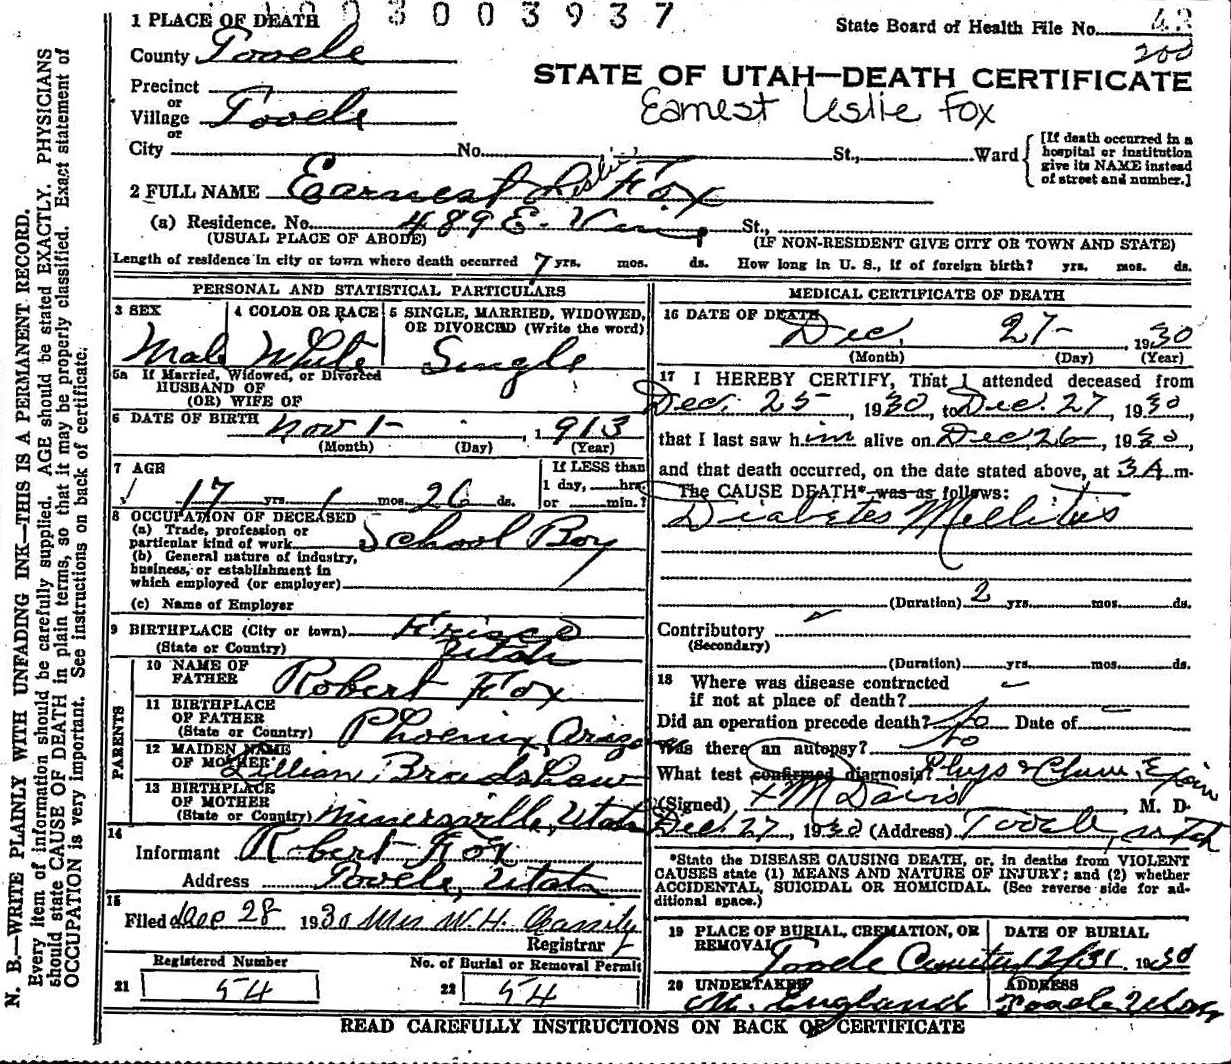 3003937
1 PLACE OF DEATH
State Board of Health File No. 42
200
County Tooele
STATE OF UTAH—DEATH CERTIFICATE
Precinct
or
Village Tooele
or
Earnest Leslie Fox
City No. St., Ward
[If death occurred in a
hospital or institution
give its NAME instead
of street and number.]
2 FULL NAME Earnest Leslie Fox
(a) Residence. No. 489 E. Vine St.,
(USUAL PLACE OF ABODE) (IF NON-RESIDENT GIVE CITY OR TOWN AND STATE)
Length of residence in city or town where death occurred 7 yrs. mos. ds. How long in U. S., if of foreign birth? yrs. mos. ds.
PERSONAL AND STATISTICAL PARTICULARS
3 SEX 4 COLOR OR RACE 5 SINGLE, MARRIED, WIDOWED,
OR DIVORCED (Write the word)
Male White Single
5a If Married, Widowed, or Divorced
HUSBAND OF
(OR) WIFE OF
6 DATE OF BIRTH Nov 1 - 1913
(Month) (Day) (Year)
7 AGE If LESS than
1 day, hrs.
17 yrs. 1 mos. 26 ds. or min.?
8 OCCUPATION OF DECEASED
(a) Trade, profession or
particular kind of work School Boy
(b) General nature of industry,
business, or establishment in
which employed (or employer)
(c) Name of Employer
9 BIRTHPLACE (City or town) Frisco
(State or Country) Utah
PARENTS
10 NAME OF
FATHER Robert Fox
11 BIRTHPLACE
OF FATHER
(State or Country) Phoenix, Arizona
12 MAIDEN NAME
OF MOTHER Lillian Bradshaw
13 BIRTHPLACE
OF MOTHER
(State or Country) Minersville, Utah
14
Informant Robert Fox
Address Tooele, Utah
15
Filed Dec 28 1930 Mrs W. H. Cassity
Registrar
Registered Number No. of Burial or Removal Permit
21 54 22 54
MEDICAL CERTIFICATE OF DEATH
16 DATE OF DEATH
Dec. 27- 1930
(Month) (Day) (Year)
17 I HEREBY CERTIFY, That I attended deceased from
Dec. 25, 1930, to Dec. 27, 1930,
that I last saw him alive on Dec 26, 1930,
and that death occurred, on the date stated above, at 3A m.
The CAUSE DEATH* was as follows:
Diabetes Mellitus
(Duration) 2 yrs. mos. ds.
Contributory
(Secondary)
(Duration) yrs. mos. ds.
18 Where was disease contracted
if not at place of death?
Did an operation precede death? No Date of
Was there an autopsy? No
What test confirmed diagnosis? Phys & Chem. Exam
(Signed) Davis M. D.
Dec 27, 1930 (Address) Tooele, Utah
*State the DISEASE CAUSING DEATH, or, in deaths from VIOLENT
CAUSES state (1) MEANS AND NATURE OF INJURY; and (2) whether
ACCIDENTAL, SUICIDAL OR HOMICIDAL. (See reverse side for ad-
ditional space.)
19 PLACE OF BURIAL, CREMATION, OR DATE OF BURIAL
REMOVAL
Tooele Cemetery 12/31 1930
20 UNDERTAKER ADDRESS
M. England Tooele Utah
READ CAREFULLY INSTRUCTIONS ON BACK OF CERTIFICATE
N. B.—WRITE PLAINLY WITH UNFADING INK—THIS IS A PERMANENT RECORD.
Every item of information should be carefully supplied. AGE should be stated EXACTLY. PHYSICIANS
should state CAUSE OF DEATH in plain terms, so that it may be properly classified. Exact statement of
OCCUPATION is very important. See instructions on back of certificate.